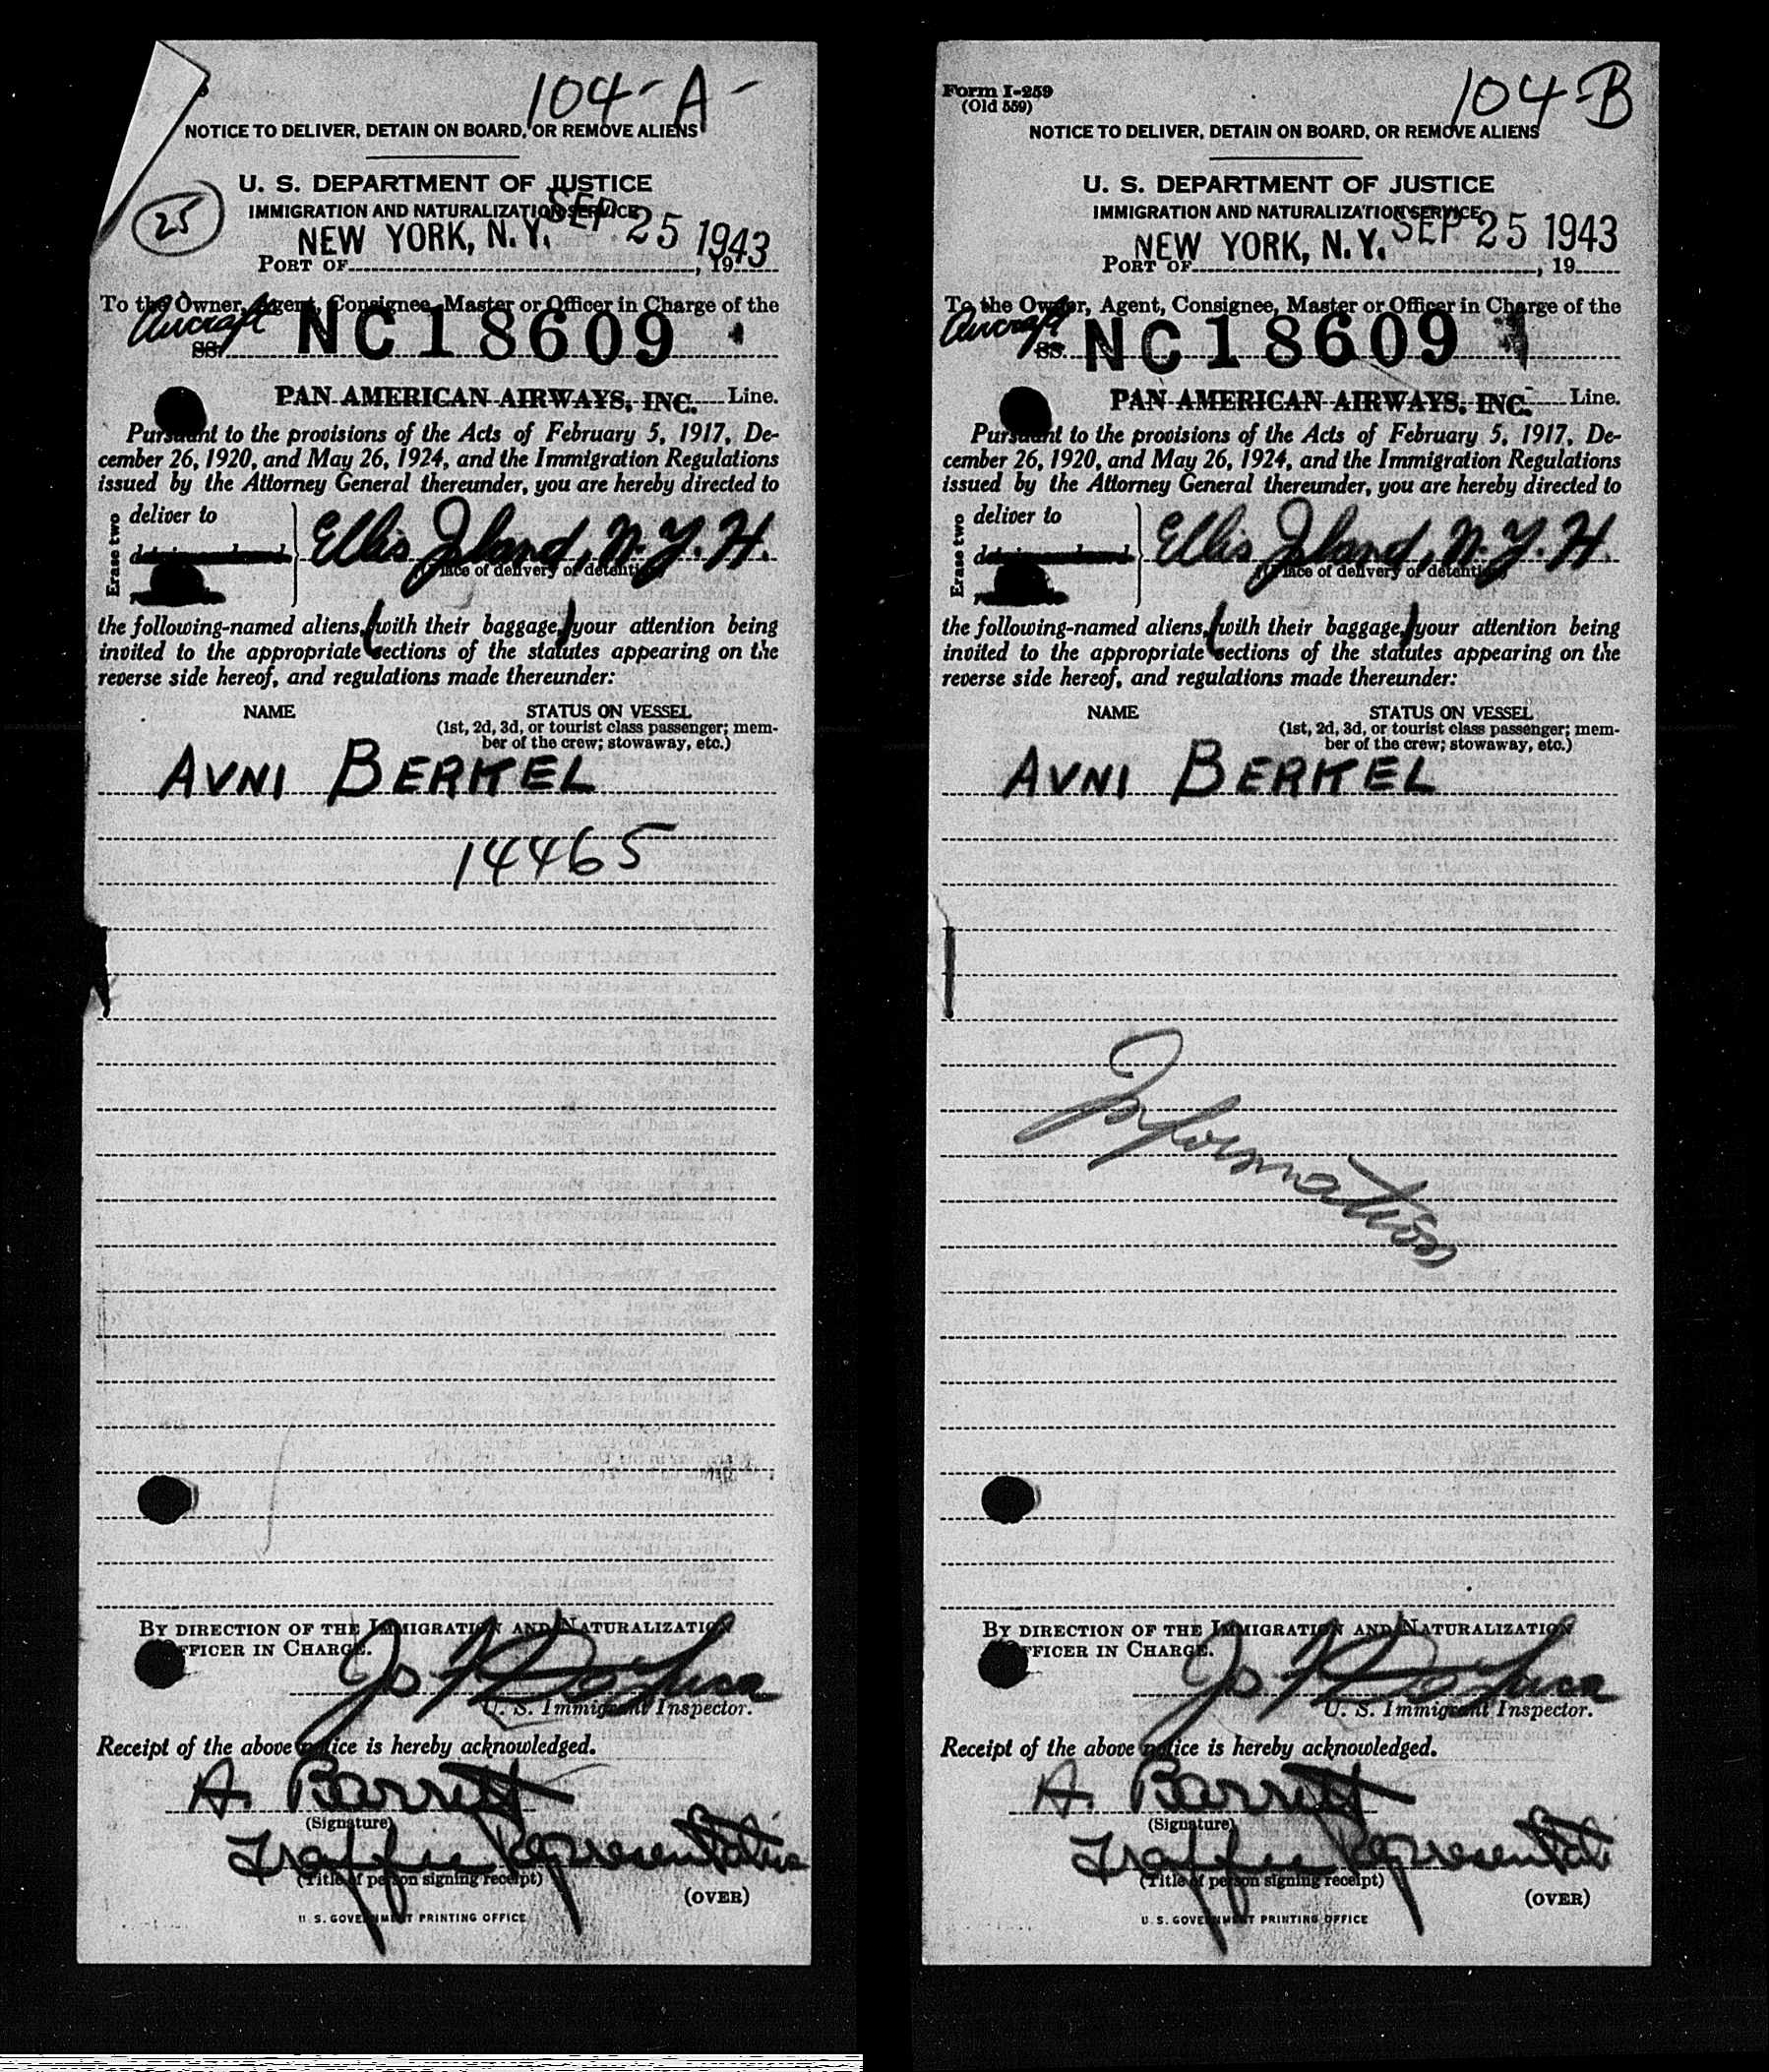 104-A-
NOTICE TO DELIVER, DETAIN ON BOARD, OR REMOVE ALIENS
U. S. DEPARTMENT OF JUSTICE
IMMIGRATION AND NATURALIZATION SERVICE
25
NEW YORK, N.Y. SEP 25 1943
PORT OF , 19
To the Owner, Agent, Consignee, Master or Officer in Charge of the
Aircraft
SS. NC18609
PAN AMERICAN AIRWAYS, INC. Line.
Pursuant to the provisions of the Acts of February 5, 1917, De-
cember 26, 1920, and May 26, 1924, and the Immigration Regulations
issued by the Attorney General thereunder, you are hereby directed to
Erase two
deliver to
Ellis Island, N.Y.H.
(Place of delivery or detention)
the following-named aliens, (with their baggage,) your attention being
invited to the appropriate sections of the statutes appearing on the
reverse side hereof, and regulations made thereunder:
NAME STATUS ON VESSEL
(1st, 2d, 3d, or tourist class passenger; mem-
ber of the crew; stowaway, etc.)
AVNI BERKEL
14465
BY DIRECTION OF THE IMMIGRATION AND NATURALIZATION
OFFICER IN CHARGE.
U. S. Immigrant Inspector.
Receipt of the above notice is hereby acknowledged.
A. Barrett
(Signature)
Traffic Representative
(Title of person signing receipt)
(OVER)
U. S. GOVERNMENT PRINTING OFFICE
104-B
Form I-259
(Old 559)
NOTICE TO DELIVER, DETAIN ON BOARD, OR REMOVE ALIENS
U. S. DEPARTMENT OF JUSTICE
IMMIGRATION AND NATURALIZATION SERVICE
NEW YORK, N.Y. SEP 25 1943
PORT OF , 19
To the Owner, Agent, Consignee, Master or Officer in Charge of the
Aircraft
SS. NC18609
PAN AMERICAN AIRWAYS, INC. Line.
Pursuant to the provisions of the Acts of February 5, 1917, De-
cember 26, 1920, and May 26, 1924, and the Immigration Regulations
issued by the Attorney General thereunder, you are hereby directed to
Erase two
deliver to
Ellis Island, N.Y.H.
(Place of delivery or detention)
the following-named aliens, (with their baggage,) your attention being
invited to the appropriate sections of the statutes appearing on the
reverse side hereof, and regulations made thereunder:
NAME STATUS ON VESSEL
(1st, 2d, 3d, or tourist class passenger; mem-
ber of the crew; stowaway, etc.)
AVNI BERKEL
Information
BY DIRECTION OF THE IMMIGRATION AND NATURALIZATION
OFFICER IN CHARGE.
U. S. Immigrant Inspector.
Receipt of the above notice is hereby acknowledged.
A. Barrett
(Signature)
Traffic Representati
(Title of person signing receipt)
(OVER)
U. S. GOVERNMENT PRINTING OFFICE